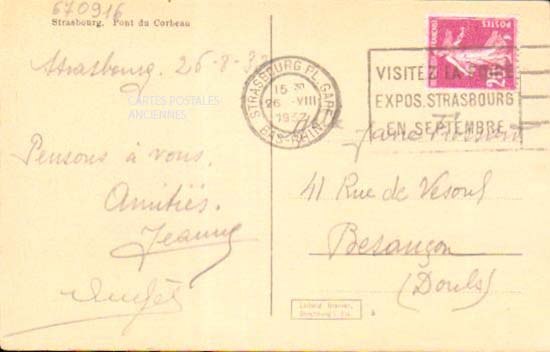 670916
Strasbourg. Pont du Corbeau
Strasbourg. 26-8-32
CARTES POSTALES
ANCIENNES
Pensons à vous.
Amitiés.
Jeanne
STRASBOURG PL. GARE
15 H
26 -VIII
BAS-RHIN
POSTES
VISITEZ LA FOIRE
EXPOS. STRASBOURG
EN SEPTEMBRE
41 Rue de Vesoul
Besançon
(Doubs)